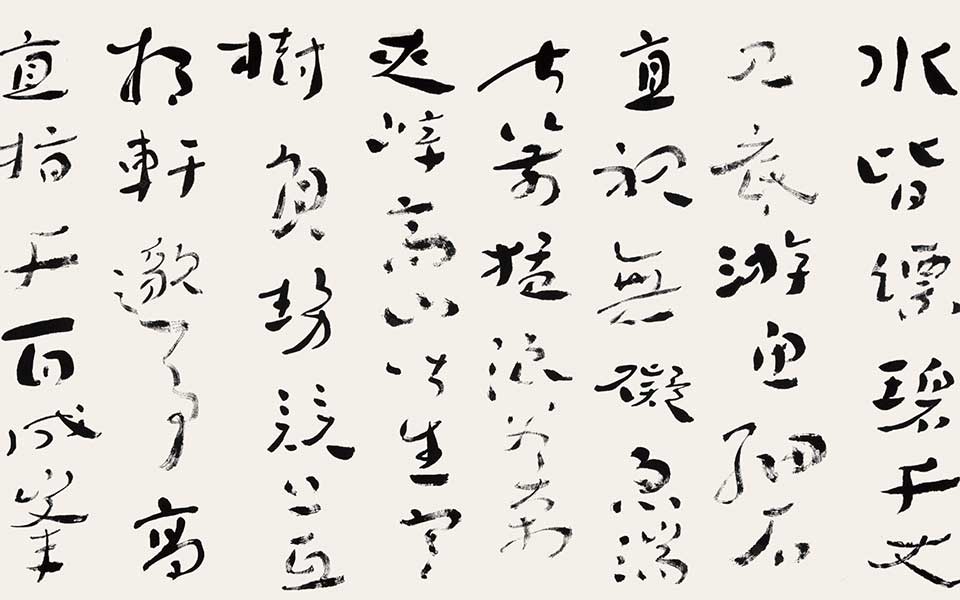 水皆縹碧千丈
見底游魚細石
直視無礙急湍
甚箭猛浪若奔
夾岸高山皆生寒
樹負勢競上互
相軒邈爭高
直指千百成峯